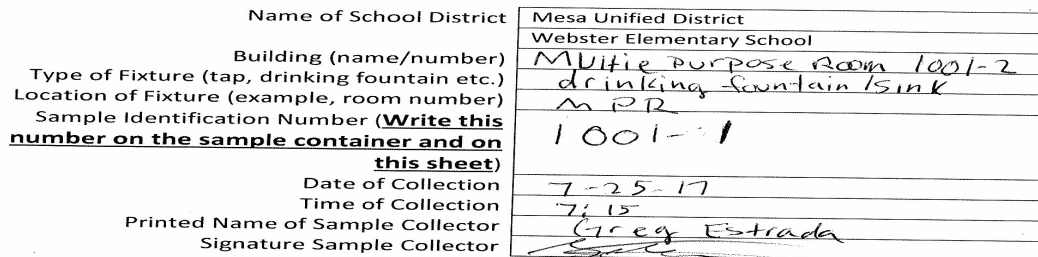 Name of School District Mesa Unified District
Webster Elementary School
Building (name/number) Multie Purpose Room 1001-2
Type of Fixture (tap, drinking fountain etc.) drinking fountain/sink
Location of Fixture (example, room number) MPR
Sample Identification Number (Write this number on the sample container and on this sheet) 1001-1
Date of Collection 7-25-17
Time of Collection 7:15
Printed Name of Sample Collector Greg Estrada
Signature Sample Collector